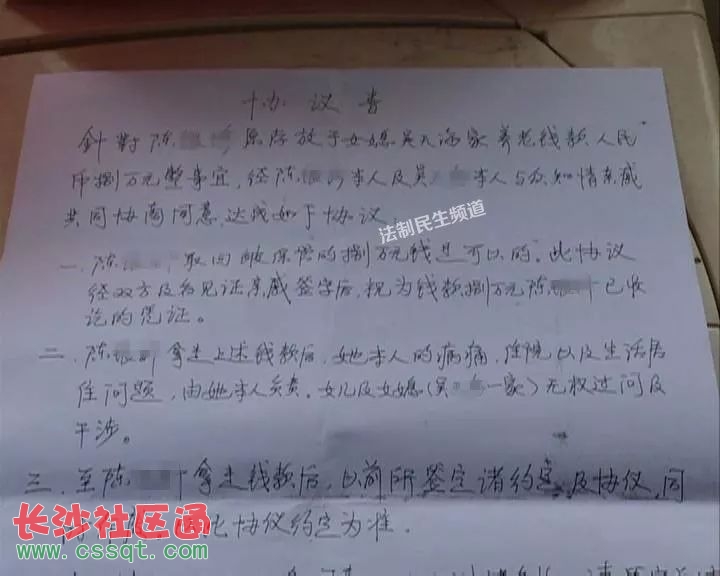 协议书
针对陈 原存放于女媳吴 家养老钱款人民
币捌万元整事宜，经陈 本人及吴 本人与众知情亲戚
共同协商同意，达成如下协议。
法制民生频道
一、陈 取回被保管的捌万元钱是可以的。此协议
经双方及 见证亲戚签字后，视为钱款捌万元陈 已收
讫的凭证。
二、陈 拿走上述钱款后，她本人的病痛、住院以及生活居
住问题，由她本人负责。女儿及女媳（吴 一家）无权过问及
干涉。
三、至陈 拿走钱款后，以前所签定诸约定及协仪，同
此协仪约定为准.
长沙社区通
www.cssqt.com